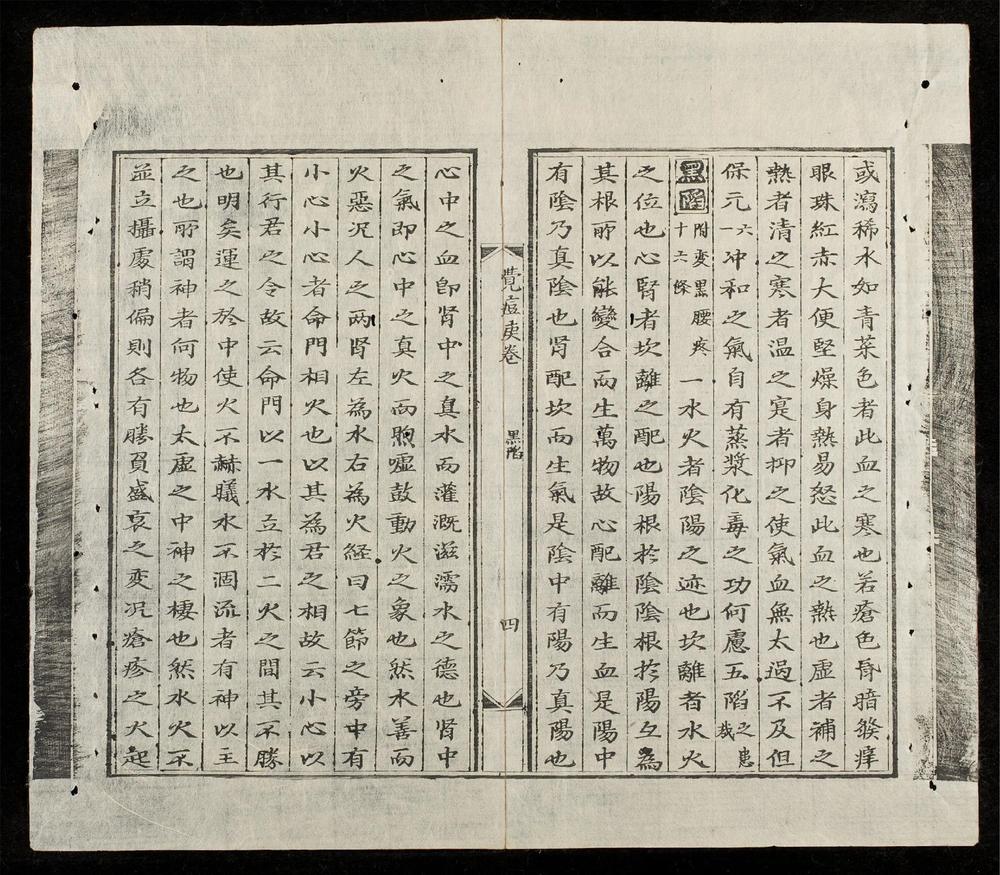 或瀉稀水如青菜色者此血之寒也若瘡色昏暗發痒
眼珠紅赤大便堅燥身熱易怒此血之熱也虛者補之
熱者清之寒者温之寔者抑之使氣血無太過不及但
保元六一冲和之氣自有蒸漿化毒之功何慮五陷之患哉
黑陷 附変黒腰疼十六條 一水火者陰陽之迹也坎離者水火
之位也心腎者坎離之配也陽根於陰陰根於陽互為
其根所以能變合而生萬物故心配離而生血是陽中
有陰乃真陰也肾配坎而生氣是陰中有陽乃真陽也
覺痘吏卷 黒陷 四
心中之血即肾中之真水而灌溉滋濡水之德也肾中
之氣即心中之真火而煦嘘鼓動火之象也然水善而
火惡况人之两肾左為水右為火経曰七節之旁中有
小心小心者命門相火也以其為君之相故云小心以
其行君之令故云命門以一水立於二火之間其不勝
也明矣運之於中使火不赫曦水不涸流者有神以主
之也所謂神者何物也太虛之中神之棲也然水火不
並立攝處稍偏則各有勝負盛衰之変况瘡疹之火起